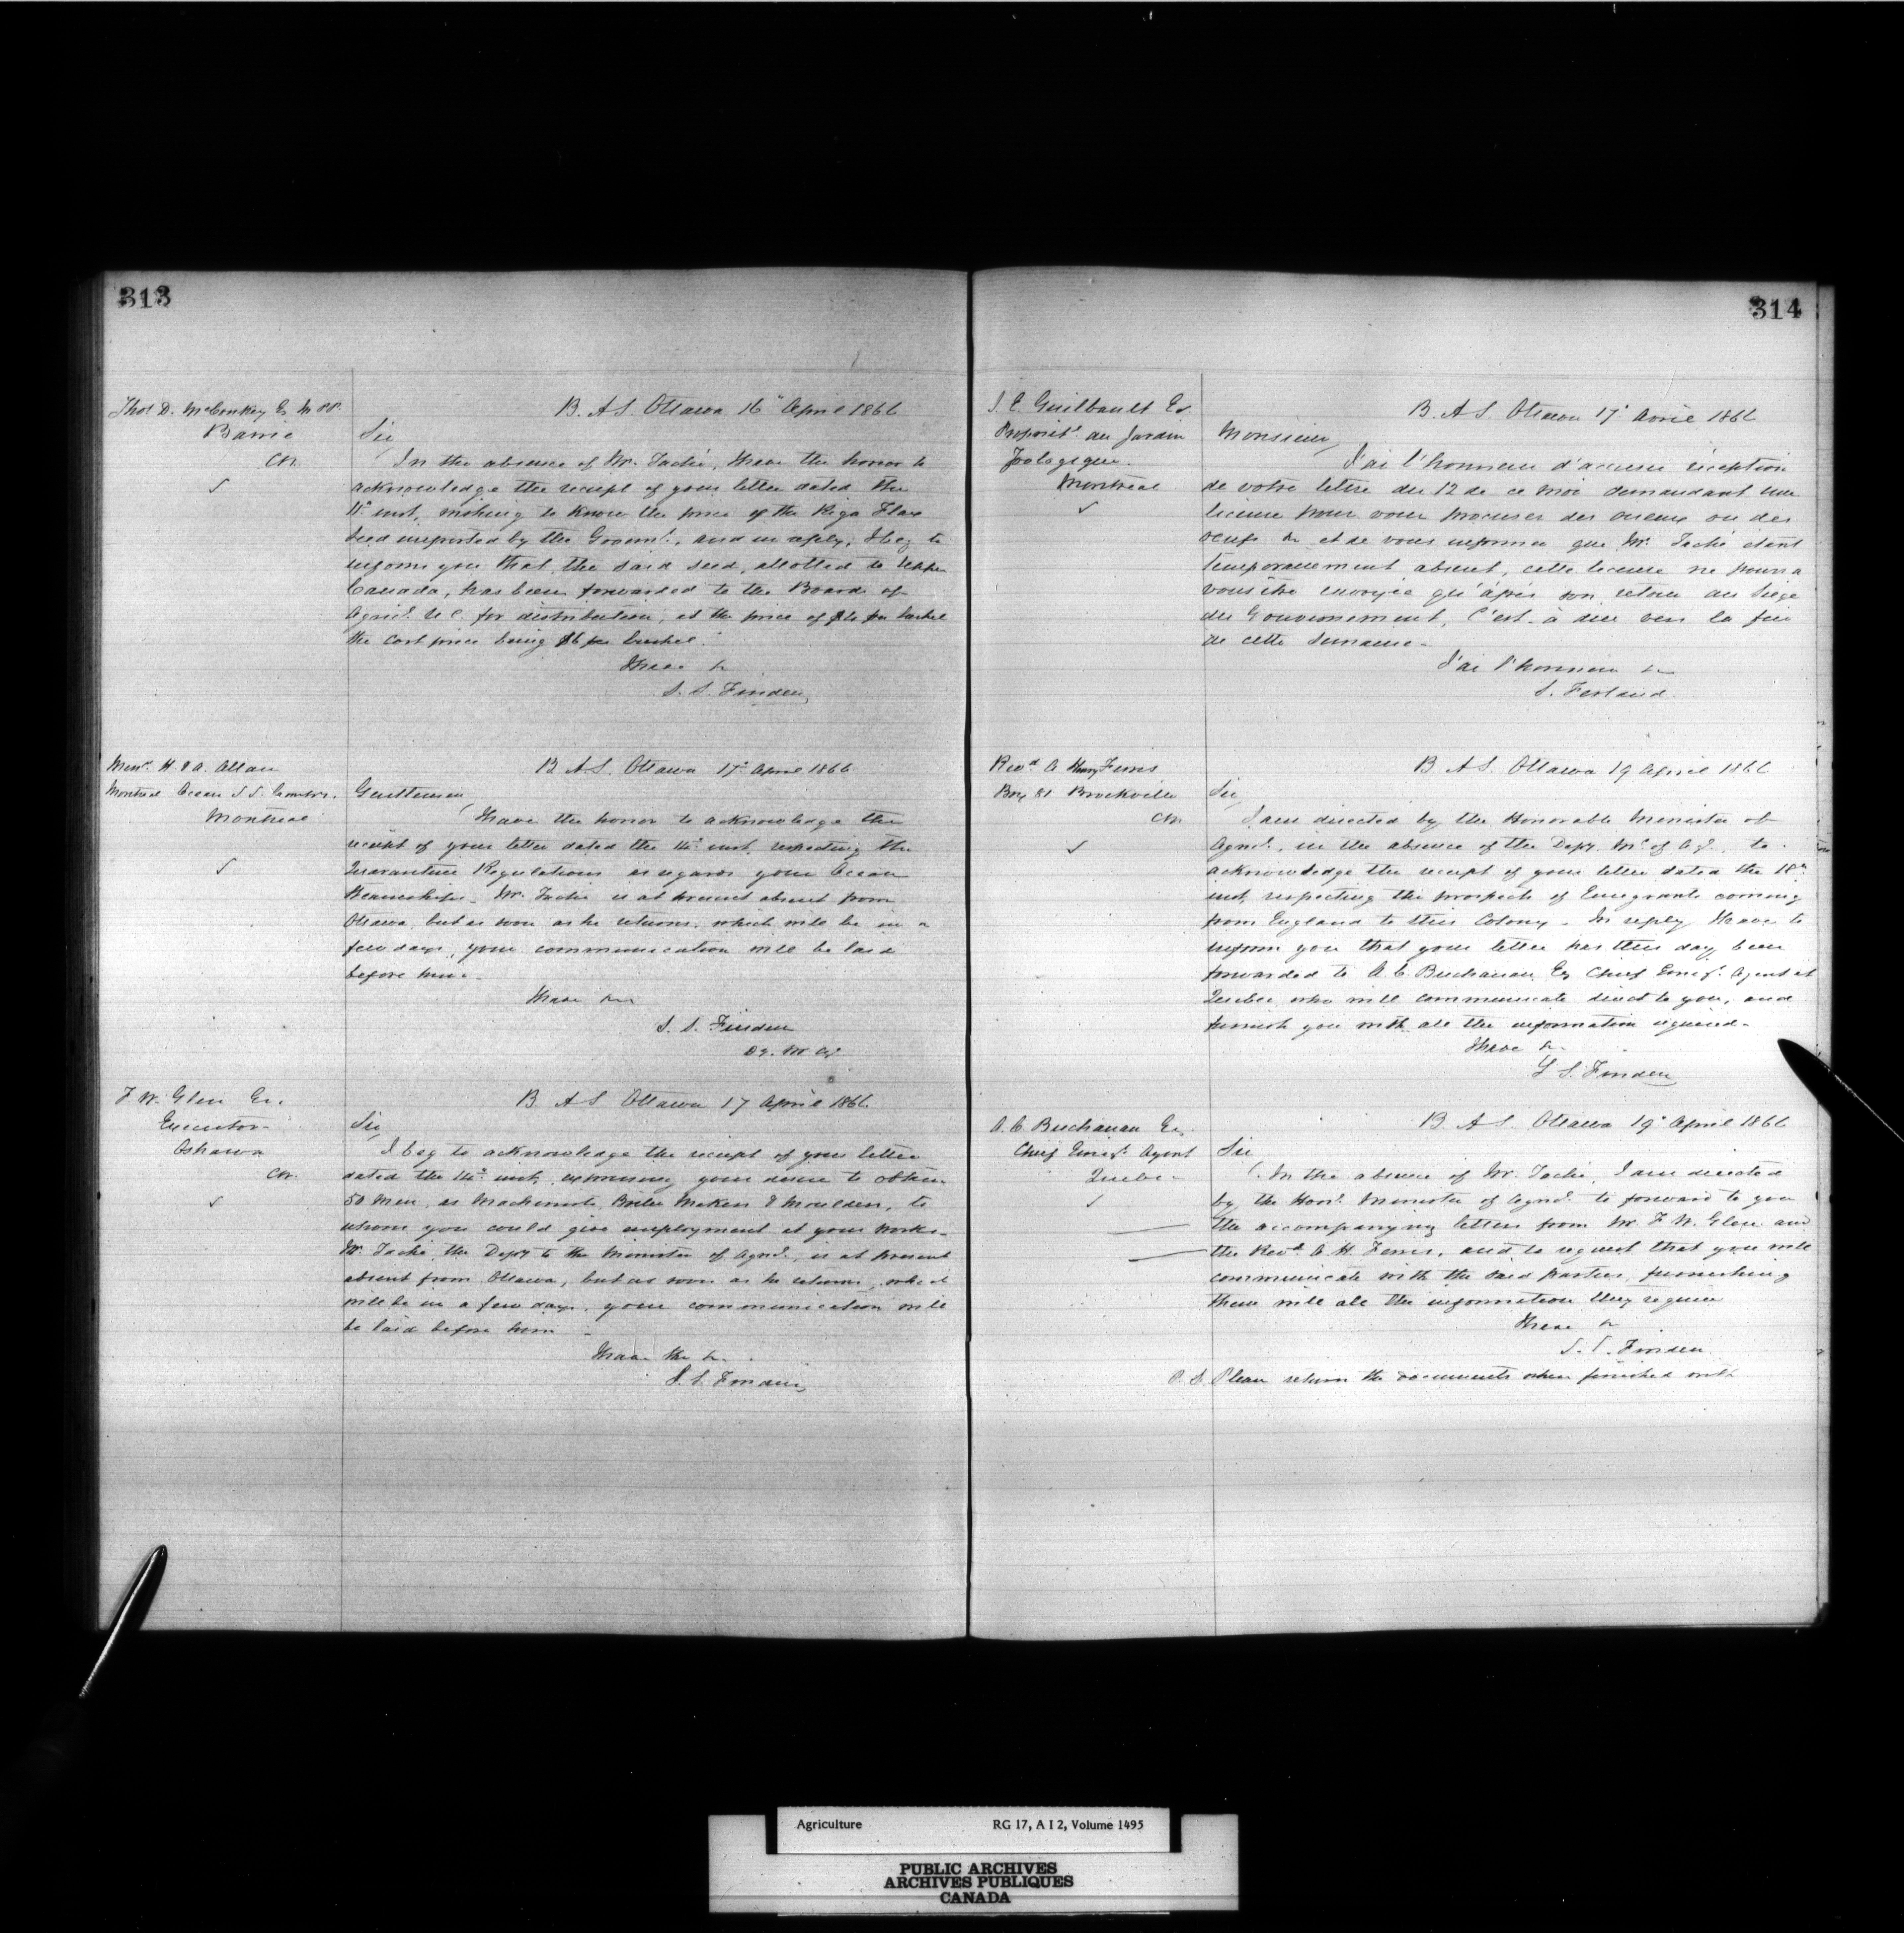 313
Thos D. McConkey Es M.P.P.
Barrie
CW.
B. A S. Ottawa 16" April 1866
Sir
In the absence of Mr. Taché, I have the honor to
acknowledge the receipt of your letter dated the
11" inst, wishing to know the price of the Riga Flax
Seed imported by the Governt., and in reply, I beg to
inform you that the said seed, allotted to Upper
Canada, has been forwarded to the Board of
Agricl. U C. for distribution, at the price of per
the cost price being $6 per bushel.
I have &c
S. S. Finden,
Messrs. H. & A. Allan
Montreal Ocean S S.
Montreal
B. A S. Ottawa 17" April 1866
Gentlemen
I have the honor to acknowledge the
receipt of your letter dated the 14" inst, respecting the
Quarantine Regulations as regards your Ocean
Steamships. Mr. Taché is at present absent from
Ottawa, but as soon as he returns, which will be in a
few days, your communication will be laid
before him.
I have &c
S. S. Finden
F. W. Glen Es.
Executor
Oshawa
CW.
B. A S Ottawa 17 April 1866.
Sir
I beg to acknowledge the receipt of your letter
dated the 14" inst, expressing your desire to obtain
50 men, as Machinists, Boiler Makers & Moulders, to
whom you could give employment at your works.
Mr. Taché the Depy to the Minister of Agricl., is at present
absent from Ottawa, but as soon as he returns, which
will be in a few days, your communication will
be laid before him.
I have the &c.
S. S. Finden,
314
S. E. Guilbault Es
Propriét. du Jardin
Zoologique.
Montréal
B. A S. Ottawa 17" Avril 1866
Monsieur,
J'ai l'honneur d'accuser réception
de votre lettre du 12 de ce mois demandant une
license pour vous procurer des oiseaux ou des
oeufs &c et de vous informer que Mr. Taché étant
temporairement absent, cette license ne pourra
vous être envoyée qu'après son retour au siège
du Gouvernement, C'est-à-dire vers la fin
de cette semaine.
J'ai l'honneur &c
S. Ferland.
Revd A Henry Ferris
Box 81 Brockville
CW
B. A S. Ottawa 19 April 1866
Sir
I am directed by the Honorable Minister of
Agricl., in the absence of the Depy. Mr of Agl., to
acknowledge the receipt of your letter dated the 18"
inst, respecting the prospects of Emigrants coming
from England to this Colony. In reply I have to
inform you that your letter has this day been
forwarded to A. C. Buchanan Es Chief Emign. Agent at
Quebec who will communicate direct to you, and
furnish you with all the information required.
I have &c.
S S. Finden
A. C. Buchanan Es.
Chief Emign. Agent
Quebec
B. A S. Ottawa 19" April 1866
Sir
In the absence of Mr. Taché, I am directed
by the Honl. Minister of Agricl. to forward to you
the accompanying letters from Mr. F. W. Glen and
the Revd. A. H. Ferris, and to request that you will
communicate with the said parties, furnishing
them with all the information they require
I have &c
S. S. Finden
P. S. Please return the documents when finished with
Agriculture RG 17, A I 2, Volume 1495
PUBLIC ARCHIVES
ARCHIVES PUBLIQUES
CANADA